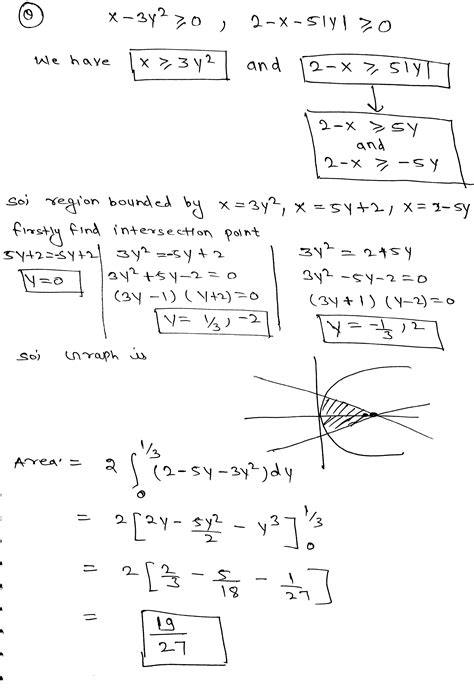 Q x-3y² ≥ 0 , 2-x-5|y| ≥ 0
We have x ≥ 3y² and 2-x ≥ 5|y|
2-x ≥ 5y
and
2-x ≥ -5y
so; region bounded by x = 3y², x = 5y+2, x = 2-5y
firstly find intersection point
5y+2=-5y+2 | 3y² = -5y + 2 | 3y² = 2+5y
y=0 | 3y² + 5y - 2 = 0 | 3y² - 5y - 2 = 0
(3y - 1) (y+2) = 0 | (3y+1) (y-2) = 0
y = 1/3, -2 | y = -1/3, 2
so; Graph is
Area = 2 ∫₀^{1/3} (2-5y-3y²) dy
= 2 [2y - 5y²/2 - y³]₀^{1/3}
= 2 [2/3 - 5/18 - 1/27]
= 19/27